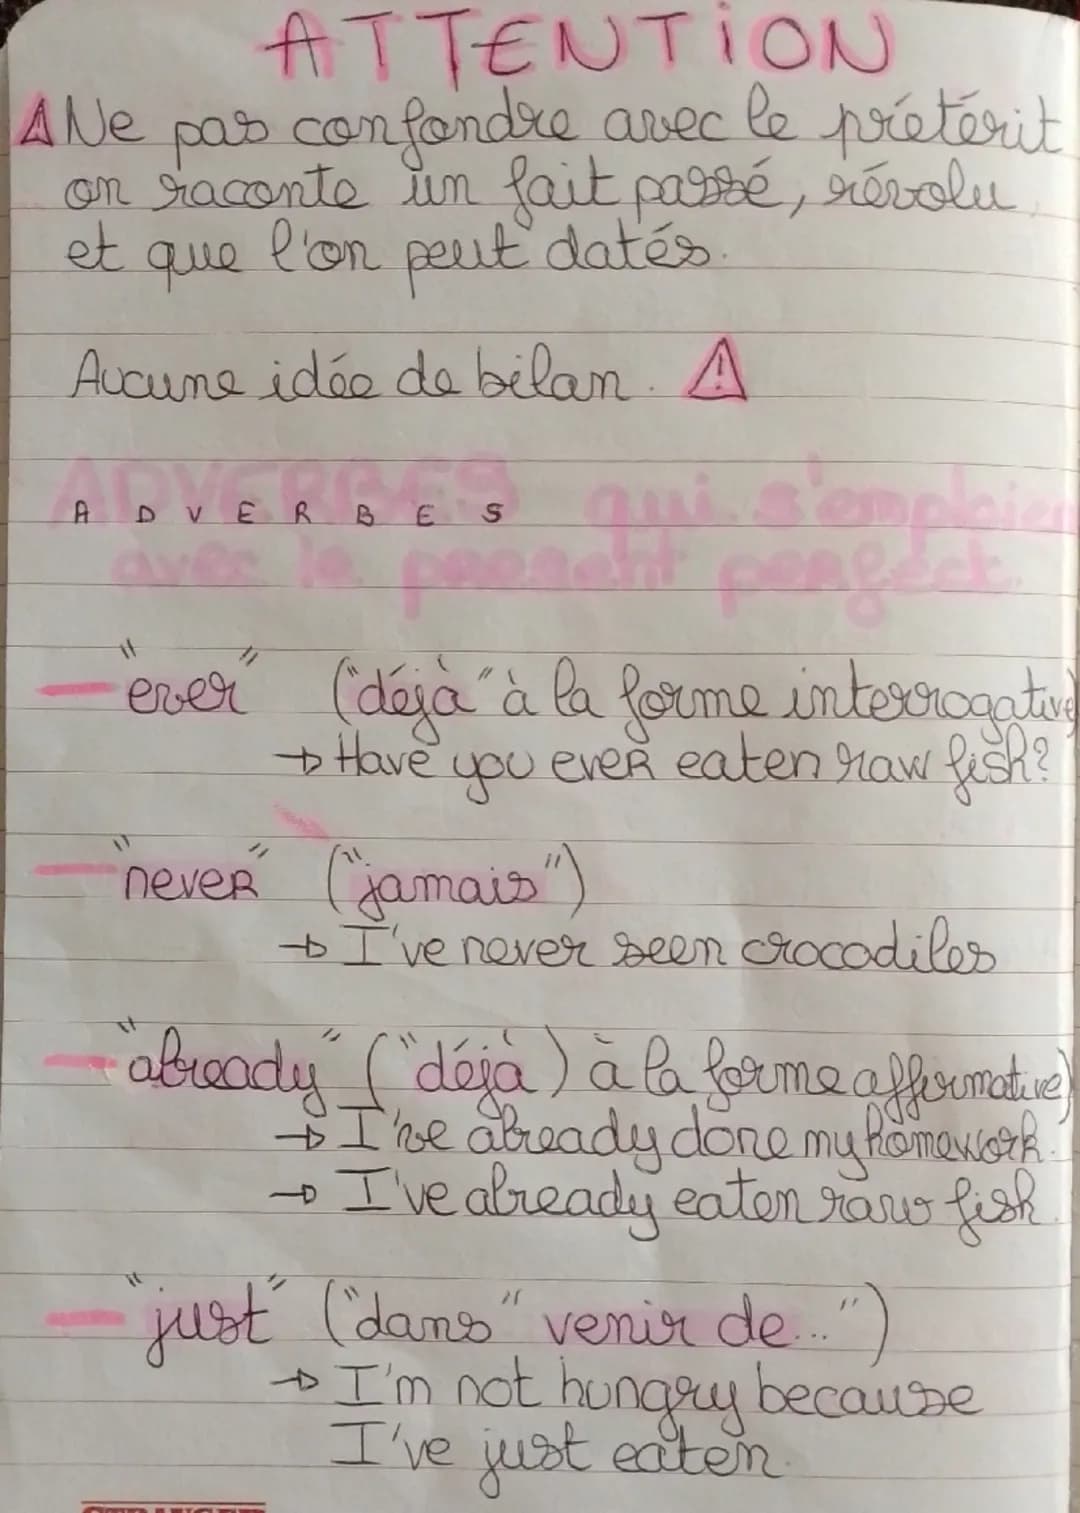 ATTENTION
⚠Ne pas confondre avec le prétérit
on raconte un fait passé, révolu
et que l'on peut datés.
Aucune idée de bilan. ⚠
ADVERBES qui s'emploien
A D V E R B E S
avec le present perfect.
— "ever" ("déjà" à la forme interrogative)
→ Have you ever eaten raw fish?
— "never" ("jamais")
→ I've never seen crocodiles
— "already" ("déjà) à la forme affirmative)
→ I've already done my homework.
→ I've already eaten raw fish.
— "just" ("dans" venir de...")
→ I'm not hungry because
I've just eaten.